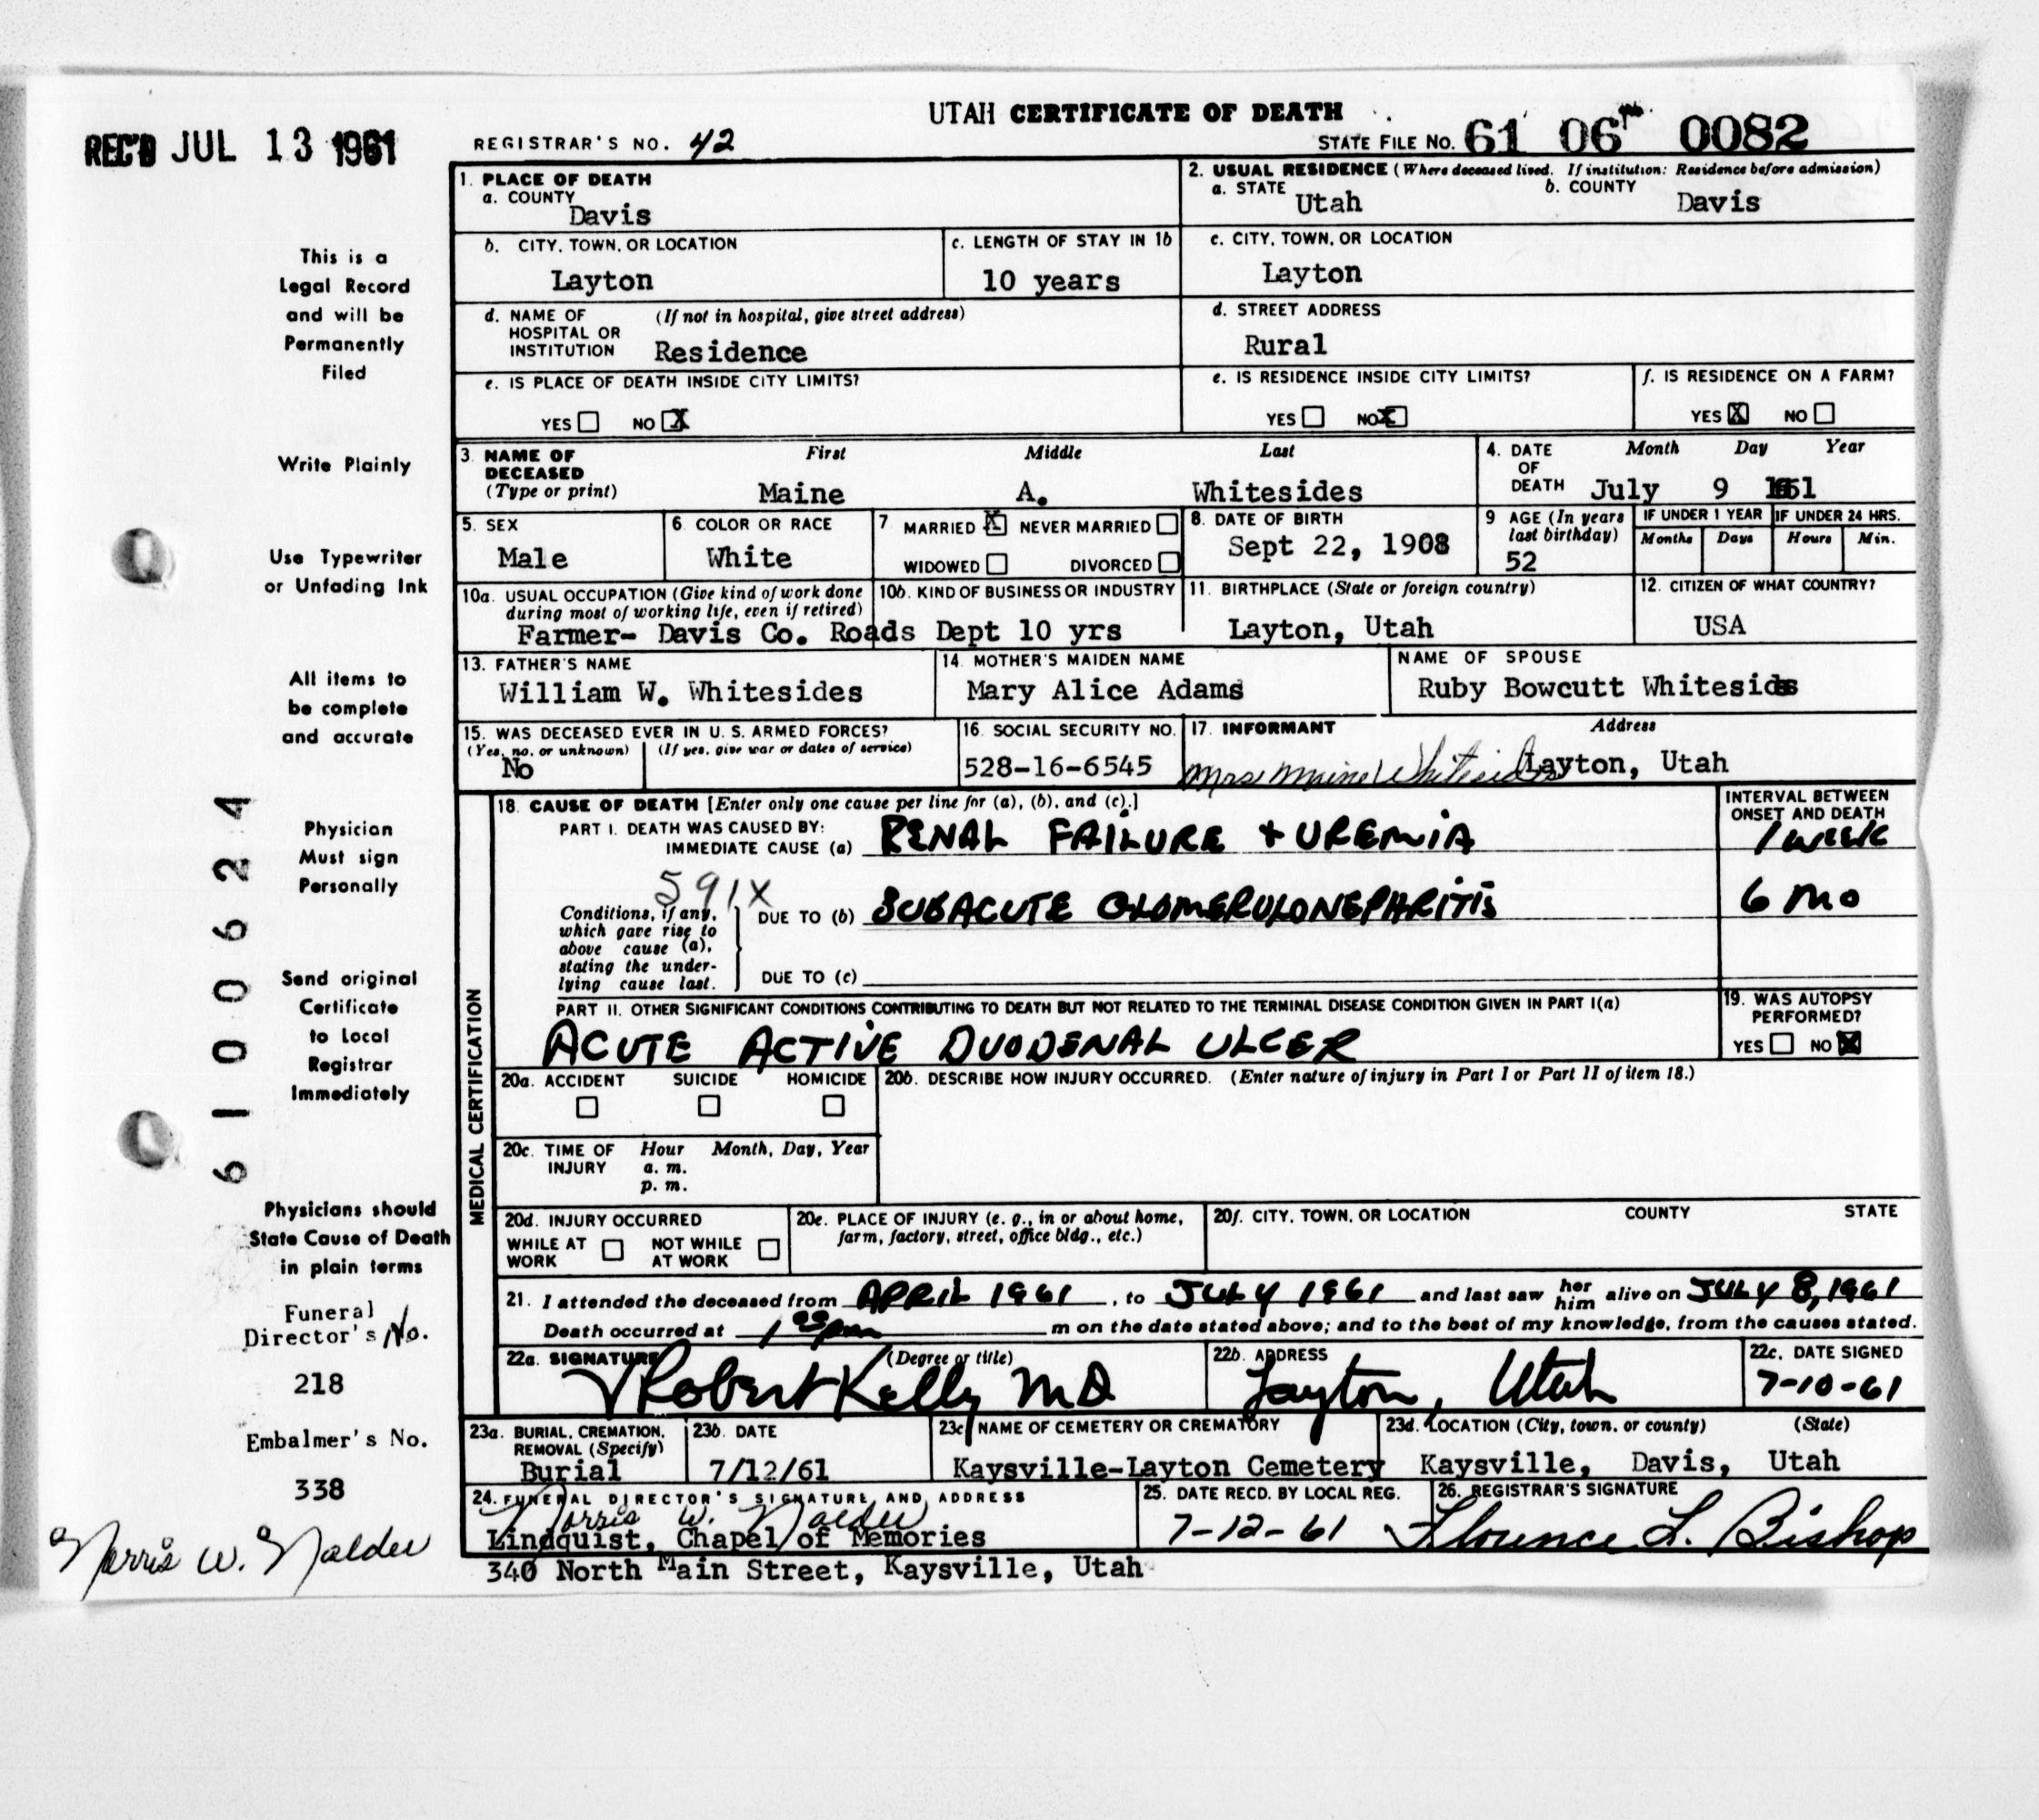 UTAH CERTIFICATE OF DEATH
REC'D JUL 13 1961
REGISTRAR'S NO. 42
STATE FILE NO. 61 06 0082
1. PLACE OF DEATH
a. COUNTY
Davis
2. USUAL RESIDENCE (Where deceased lived. If institution: Residence before admission)
a. STATE Utah b. COUNTY Davis
b. CITY, TOWN, OR LOCATION
Layton
c. LENGTH OF STAY IN 1b
10 years
c. CITY, TOWN, OR LOCATION
Layton
d. NAME OF HOSPITAL OR INSTITUTION (If not in hospital, give street address)
Residence
d. STREET ADDRESS
Rural
e. IS PLACE OF DEATH INSIDE CITY LIMITS?
YES NO X
e. IS RESIDENCE INSIDE CITY LIMITS?
YES NO X
f. IS RESIDENCE ON A FARM?
YES X NO
3. NAME OF DECEASED (Type or print)
First Middle Last
Maine A. Whitesides
4. DATE OF DEATH
Month Day Year
July 9 1961
5. SEX
Male
6 COLOR OR RACE
White
7 MARRIED X NEVER MARRIED
WIDOWED DIVORCED
8. DATE OF BIRTH
Sept 22, 1908
9 AGE (In years last birthday)
52
IF UNDER 1 YEAR IF UNDER 24 HRS.
Months Days Hours Min.
10a. USUAL OCCUPATION (Give kind of work done during most of working life, even if retired)
10b. KIND OF BUSINESS OR INDUSTRY
Farmer- Davis Co. Roads Dept 10 yrs
11. BIRTHPLACE (State or foreign country)
Layton, Utah
12. CITIZEN OF WHAT COUNTRY?
USA
13. FATHER'S NAME
William W. Whitesides
14. MOTHER'S MAIDEN NAME
Mary Alice Adams
NAME OF SPOUSE
Ruby Bowcutt Whitesides
15. WAS DECEASED EVER IN U. S. ARMED FORCES?
(Yes, no. or unknown) (If yes, give war or dates of service)
No
16. SOCIAL SECURITY NO.
528-16-6545
17. INFORMANT Address
Mrs Maine Whitesides Layton, Utah
MEDICAL CERTIFICATION
18. CAUSE OF DEATH [Enter only one cause per line for (a), (b), and (c).]
INTERVAL BETWEEN ONSET AND DEATH
PART I. DEATH WAS CAUSED BY:
IMMEDIATE CAUSE (a) RENAL FAILURE + UREMIA 1 week
591X
Conditions, if any, which gave rise to above cause (a), stating the underlying cause last.
DUE TO (b) SUBACUTE GLOMERULONEPHRITIS 6 mo
DUE TO (c)
PART II. OTHER SIGNIFICANT CONDITIONS CONTRIBUTING TO DEATH BUT NOT RELATED TO THE TERMINAL DISEASE CONDITION GIVEN IN PART I(a)
ACUTE ACTIVE DUODENAL ULCER
19. WAS AUTOPSY PERFORMED?
YES NO X
20a. ACCIDENT SUICIDE HOMICIDE
20b. DESCRIBE HOW INJURY OCCURRED. (Enter nature of injury in Part I or Part II of item 18.)
20c. TIME OF INJURY Hour Month, Day, Year
a. m.
p. m.
20d. INJURY OCCURRED
WHILE AT WORK NOT WHILE AT WORK
20e. PLACE OF INJURY (e. g., in or about home, farm, factory, street, office bldg., etc.)
20f. CITY, TOWN, OR LOCATION COUNTY STATE
21. I attended the deceased from APRIL 1961, to JULY 1961 and last saw her him alive on JULY 8, 1961
Death occurred at 1 00 pm m on the date stated above; and to the best of my knowledge, from the causes stated.
22a. SIGNATURE (Degree or title)
Robert Kelly MD
22b. ADDRESS
Layton, Utah
22c. DATE SIGNED
7-10-61
23a. BURIAL, CREMATION, REMOVAL (Specify)
Burial
23b. DATE
7/12/61
23c NAME OF CEMETERY OR CREMATORY
Kaysville-Layton Cemetery
23d. LOCATION (City, town, or county) (State)
Kaysville, Davis, Utah
24. FUNERAL DIRECTOR'S SIGNATURE AND ADDRESS
Norris W. Nalder
Lindquist, Chapel of Memories
340 North Main Street, Kaysville, Utah
25. DATE RECD. BY LOCAL REG.
7-12-61
26. REGISTRAR'S SIGNATURE
Florence L. Bishop
This is a
Legal Record
and will be
Permanently
Filed
Write Plainly
Use Typewriter
or Unfading Ink
All items to
be complete
and accurate
Physician
Must sign
Personally
Send original
Certificate
to Local
Registrar
Immediately
Physicians should
State Cause of Death
in plain terms
Funeral
Director's No.
218
Embalmer's No.
338
Norris W. Nalder
61 00624